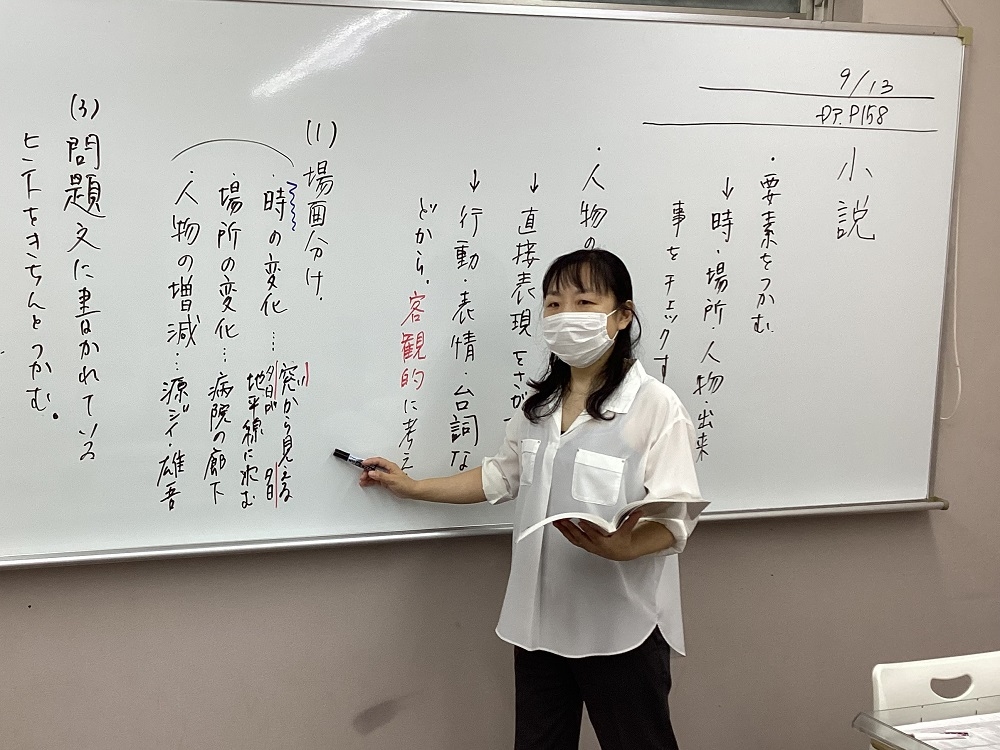 9/13
P158
小説
・要素をつかむ
↓時・場所・人物・出来
事をチェックす
・人物の
↓直接表現をさが
↓行動・表情・台詞な
どから。客観的に考え
(1)場面分け.
・時の変化…窓から見える夕日
夕日が地平線に沈む
・場所の変化…病院の廊下
・人物の増減…源ジイ・雄吾
(3)問題文に書かれている
ヒントをきちんとつかむ。